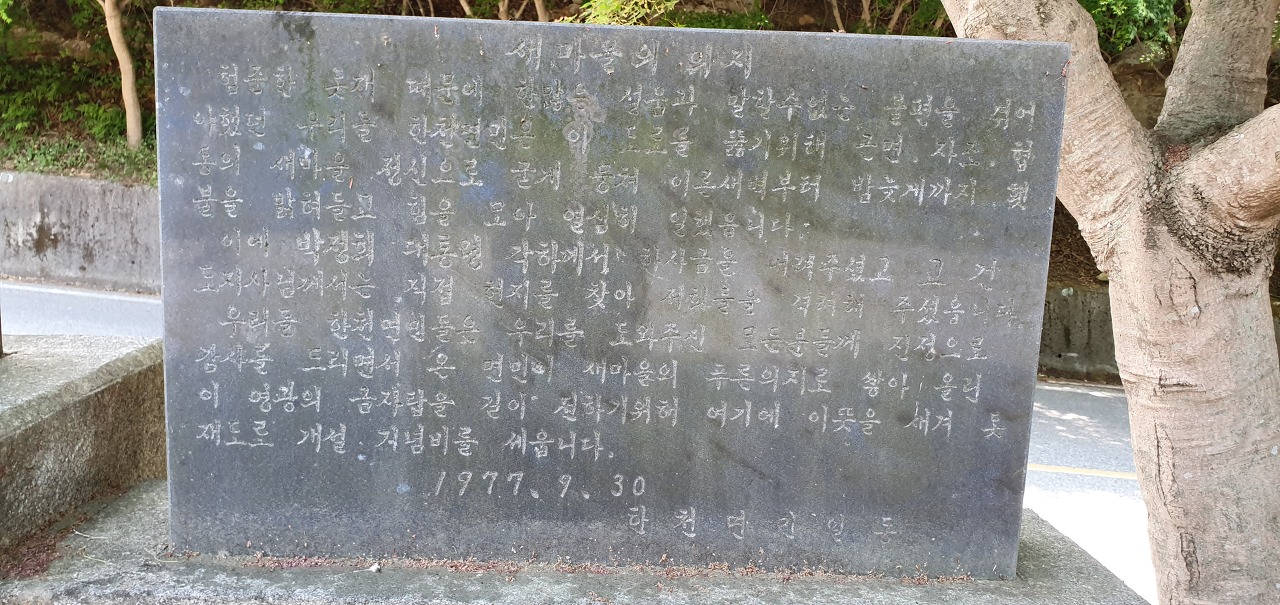 새마을의 의지
험준한 돗재 때문에 한많은 설움과 말할수없는 불편을 겪어
야했던 우리들 한천면민은 이 도로을 뚫기위해 근면. 자조. 협
동의 새마을 정신으로 굳게 뭉쳐 이른새벽부터 밤늦게까지 횃
불을 밝혀들고 힘을 모아 열심히 일했읍니다.
이에 박정희 대통령 각하께서 하사금을 내려주셨고 고 건
도지사님께서는 직접 현지를 찾아 저희들을 격려해 주셨읍니다.
우리들 한천면민들은 우리를 도와주신 모든분들께 진정으로
감사를 드리면서 온 면민이 새마을의 푸른의지로 쌓아 올린
이 영광의 금자탑을 길이 전하기위해 여기에 이뜻을 새겨 돗
재도로 개설 기념비를 세웁니다.
1977. 9. 30
한천면민일동